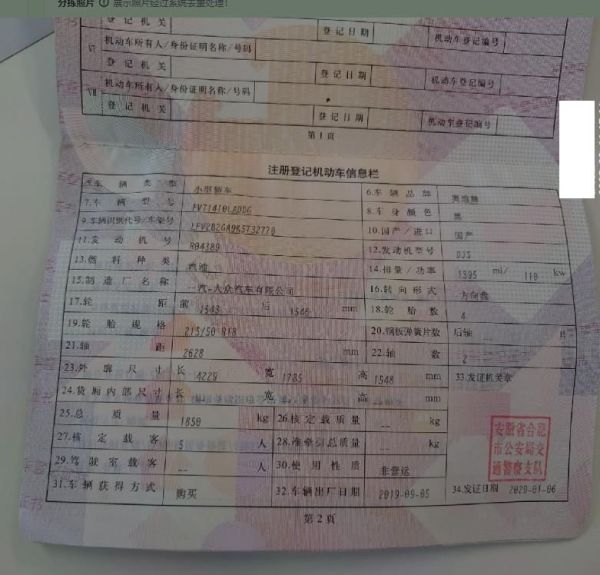 分拣照片 ⓘ 展示照片经过系统去重处理！
登 记 机 关
登 记 日 期
机动车登记编号
Ⅵ 机动车所有人/身份证明名称/号码
登 记 机 关
登 记 日 期
机动车登记编号
Ⅶ 机动车所有人/身份证明名称/号码
登 记 机 关
登 记 日 期
机动车登记编号
第 1 页
注册登记机动车信息栏
5.车 辆 类 型 小型轿车 6.车 辆 品 牌
7.车 辆 型 号 8.车 身 颜 色 黑
9.车辆识别代号/车架号 10.国产/进口 国产
11.发 动 机 号 R04389 12.发动机型号 DJS
13.燃 料 种 类 汽油 14.排量/功率 1395 ml/ 110 kw
15.制 造 厂 名 称 一汽-大众汽车有限公司 16.转向形式 方向盘
17.轮 距 前 1543 后 1546 mm 18.轮 胎 数 4
19.轮 胎 规 格 215/50 R18 20.钢板弹簧片数 后轴 片
21.轴 距 2628 mm 22.轴 数 2
23.外 廓 尺 寸 长 4229 宽 1785 高 1548 mm 33.发证机关章
24.货厢内部尺寸 长 宽 高 mm
25.总 质 量 1850 kg 26.核定载质量 -- kg
27.核 定 载 客 5 人 28.准牵引总质量 -- kg
29.驾 驶 室 载 客 -- 人 30.使 用 性 质 非营运
安徽省合肥
市公安局交
通警察支队
31.车 辆 获 得 方 式 购买 32.车辆出厂日期 2019-09-05 34.发证日期 2020-01-06
第 2 页